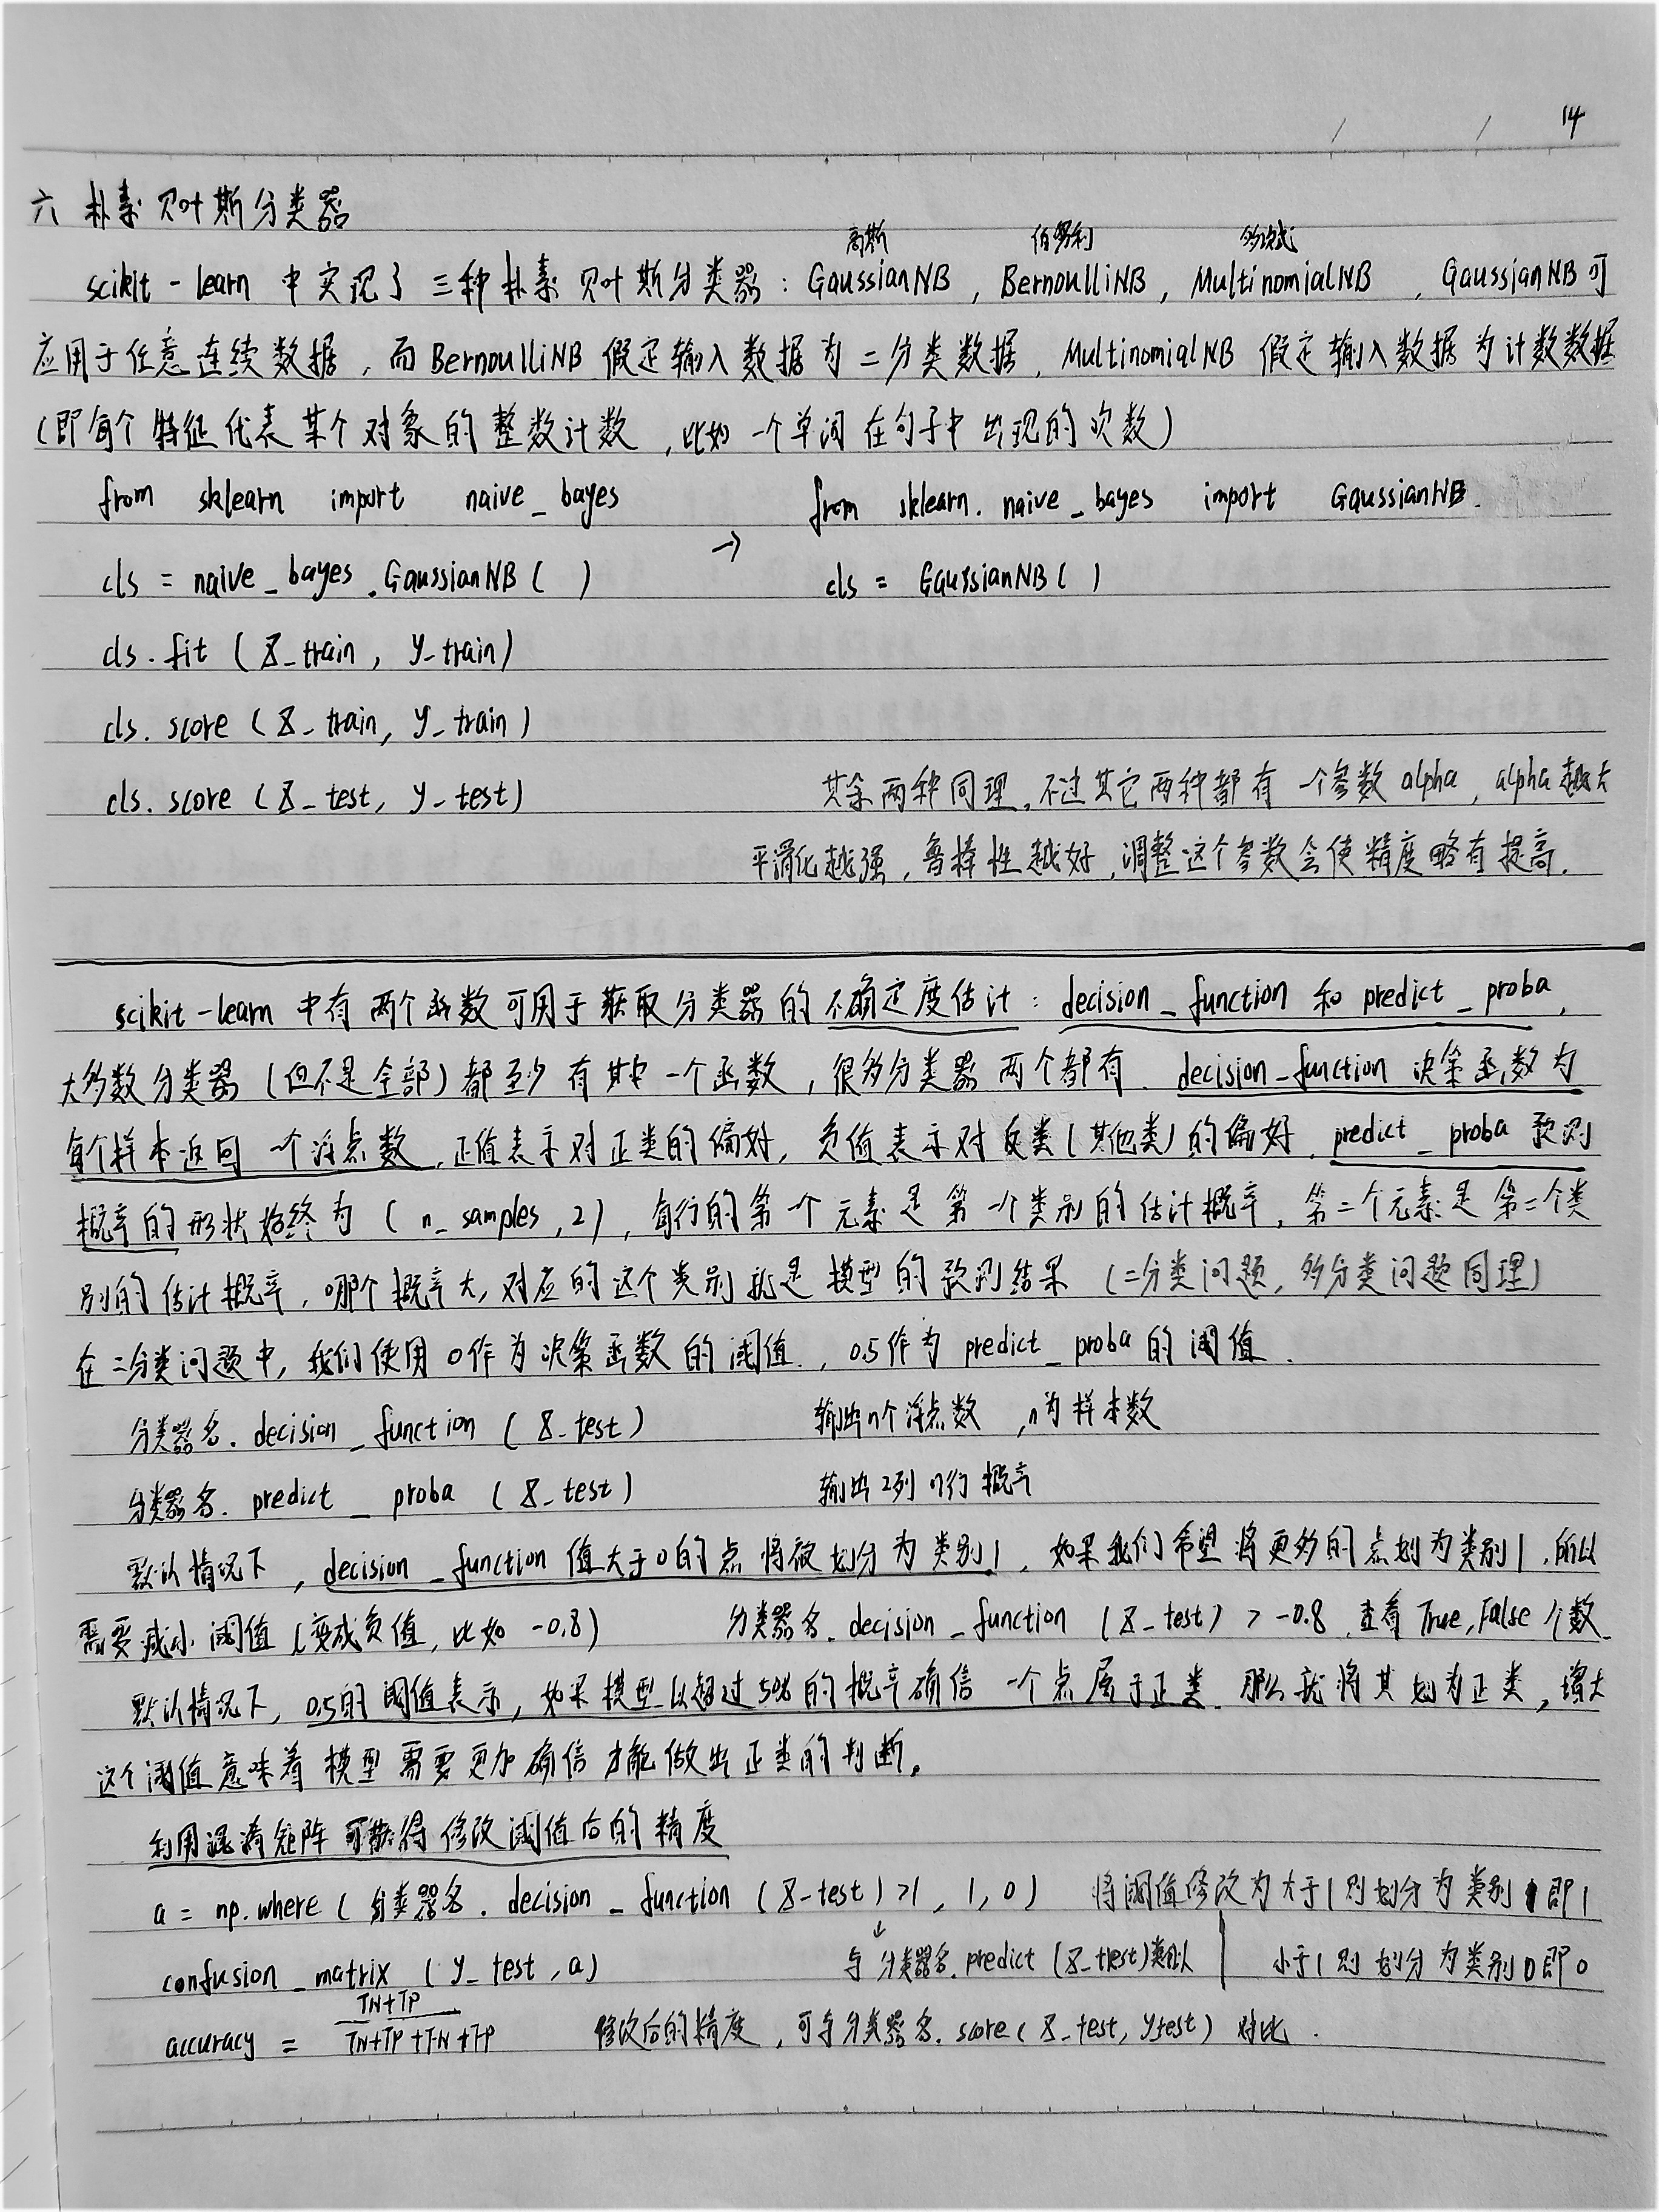 14
六 朴素贝叶斯分类器
高斯 伯努利 多项式
scikit-learn 中实现了三种朴素贝叶斯分类器：GaussianNB，BernoulliNB，MultinomialNB ，GaussianNB可
应用于任意连续数据，而BernoulliNB 假定输入数据为二分类数据，MultinomialNB 假定输入数据为计数数据
（即每个特征代表某个对象的整数计数，比如一个单词在句子中出现的次数）
from sklearn import naive_bayes from sklearn.naive_bayes import GaussianNB.
→
cls = naive_bayes.GaussianNB( ) cls = GaussianNB( )
cls.fit (X_train, y_train)
cls.score (X_train, y_train)
cls.score (X_test, y_test) 其余两种同理，不过其它两种都有一个参数alpha，alpha越大
平滑化越强，鲁棒性越好，调整这个参数会使精度略有提高.
scikit-learn 中有两个函数可用于获取分类器的不确定度估计：decision_function 和 predict_proba，
大多数分类器（但不是全部）都至少有其中一个函数，很多分类器两个都有. decision_function 决策函数为
每个样本返回一个浮点数，正值表示对正类的偏好，负值表示对反类（其他类）的偏好. predict_proba 预测
概率的形状始终为（n_samples，2），每行的第一个元素是第一个类别的估计概率，第二个元素是第二个类
别的估计概率，哪个概率大，对应的这个类别就是模型的预测结果（二分类问题，多分类问题同理）
在二分类问题中，我们使用0作为决策函数的阈值，0.5作为predict_proba的阈值.
分类器名.decision_function (X_test) 输出n个浮点数，n为样本数
分类器名.predict_proba (X_test) 输出2列n行概率
默认情况下，decision_function 值大于0的点将被划分为类别1，如果我们希望将更多的点划为类别1，所以
需要减小阈值（变成负值，比如 -0.8） 分类器名.decision_function (X_test) > -0.8，查看True,False个数.
默认情况下，0.5的阈值表示，如果模型以超过50%的概率确信一个点属于正类，那么就将其划为正类，增大
这个阈值意味着模型需要更加确信才能做出正类的判断。
利用混淆矩阵可获得修改阈值后的精度
a = np.where (分类器名.decision_function (X_test) >1, 1, 0) 将阈值修改为大于1则划分为类别1即1
↓
confusion_matrix (y_test, a) 与分类器名.predict (X_test)类似 小于1则划分为类别0即0
TN+TP
accuracy = TN+TP+FN+FP 修改后的精度，可与分类器名.score (X_test, y_test) 对比.